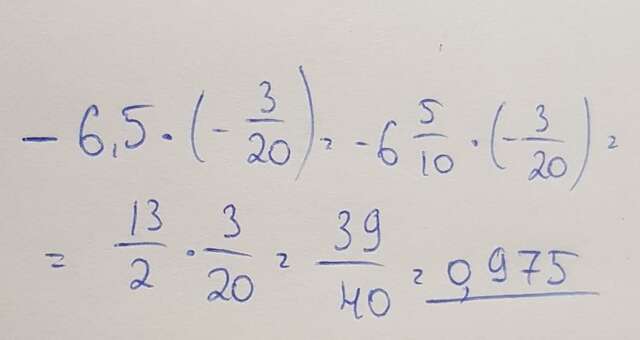 - 6,5 · (- 3/20) = -6 5/10 · (- 3/20) =
= 13/2 · 3/20 = 39/40 = 0,975